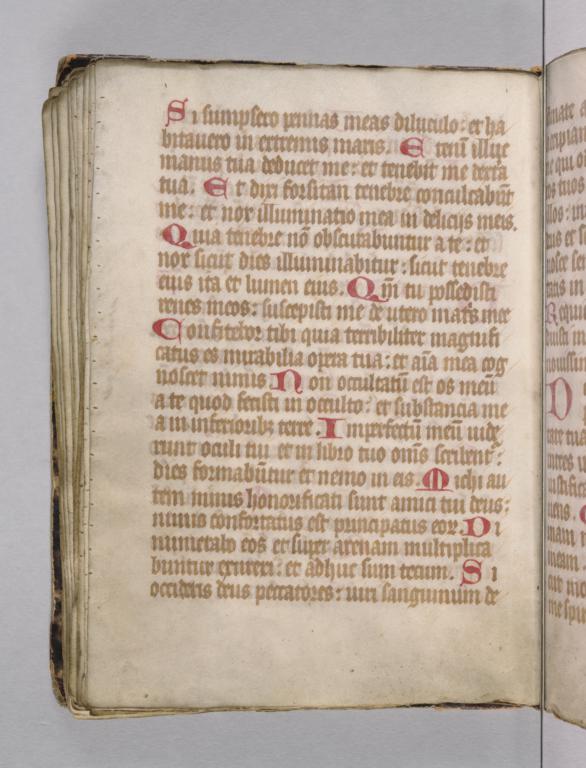 Si sumpsero pennas meas diluculo: et ha
bitauero in extremis maris. Etenī illuc
manus tua deducet me: et tenebit me dextra
tua. Et dixi forsitan tenebre conculcabūt
me: et nox illuminatio mea in delicijs meis.
Quia tenebre nō obscurabuntur a te: et
nox sicut dies illuminabitur: sicut tenebre
eius ita et lumen eius. Qm̄ tu possedisti
renes meos: suscepisti me de utero mat̄s mee
Confitebor tibi quia terribiliter magnifi
catus es mirabilia opera tua: et aīa mea cog
noscet nimis Non occultatū est os meū
a te quod fecisti in occulto: et substancia me
a in inferioribꝫ terre. Imperfectū meū uide
runt oculi tui et in libro tuo om̄s scribent̄:
dies formabūtur et nemo in eis. Michi au
tem nimis honorificati sunt amici tui deus:
nimis confortatus est principatus eor. Di
numerabo eos et super arenam multiplica
buntur exurrexi: et adhuc sum tecum. Si
occideris deus peccatores: uiri sanguinum de